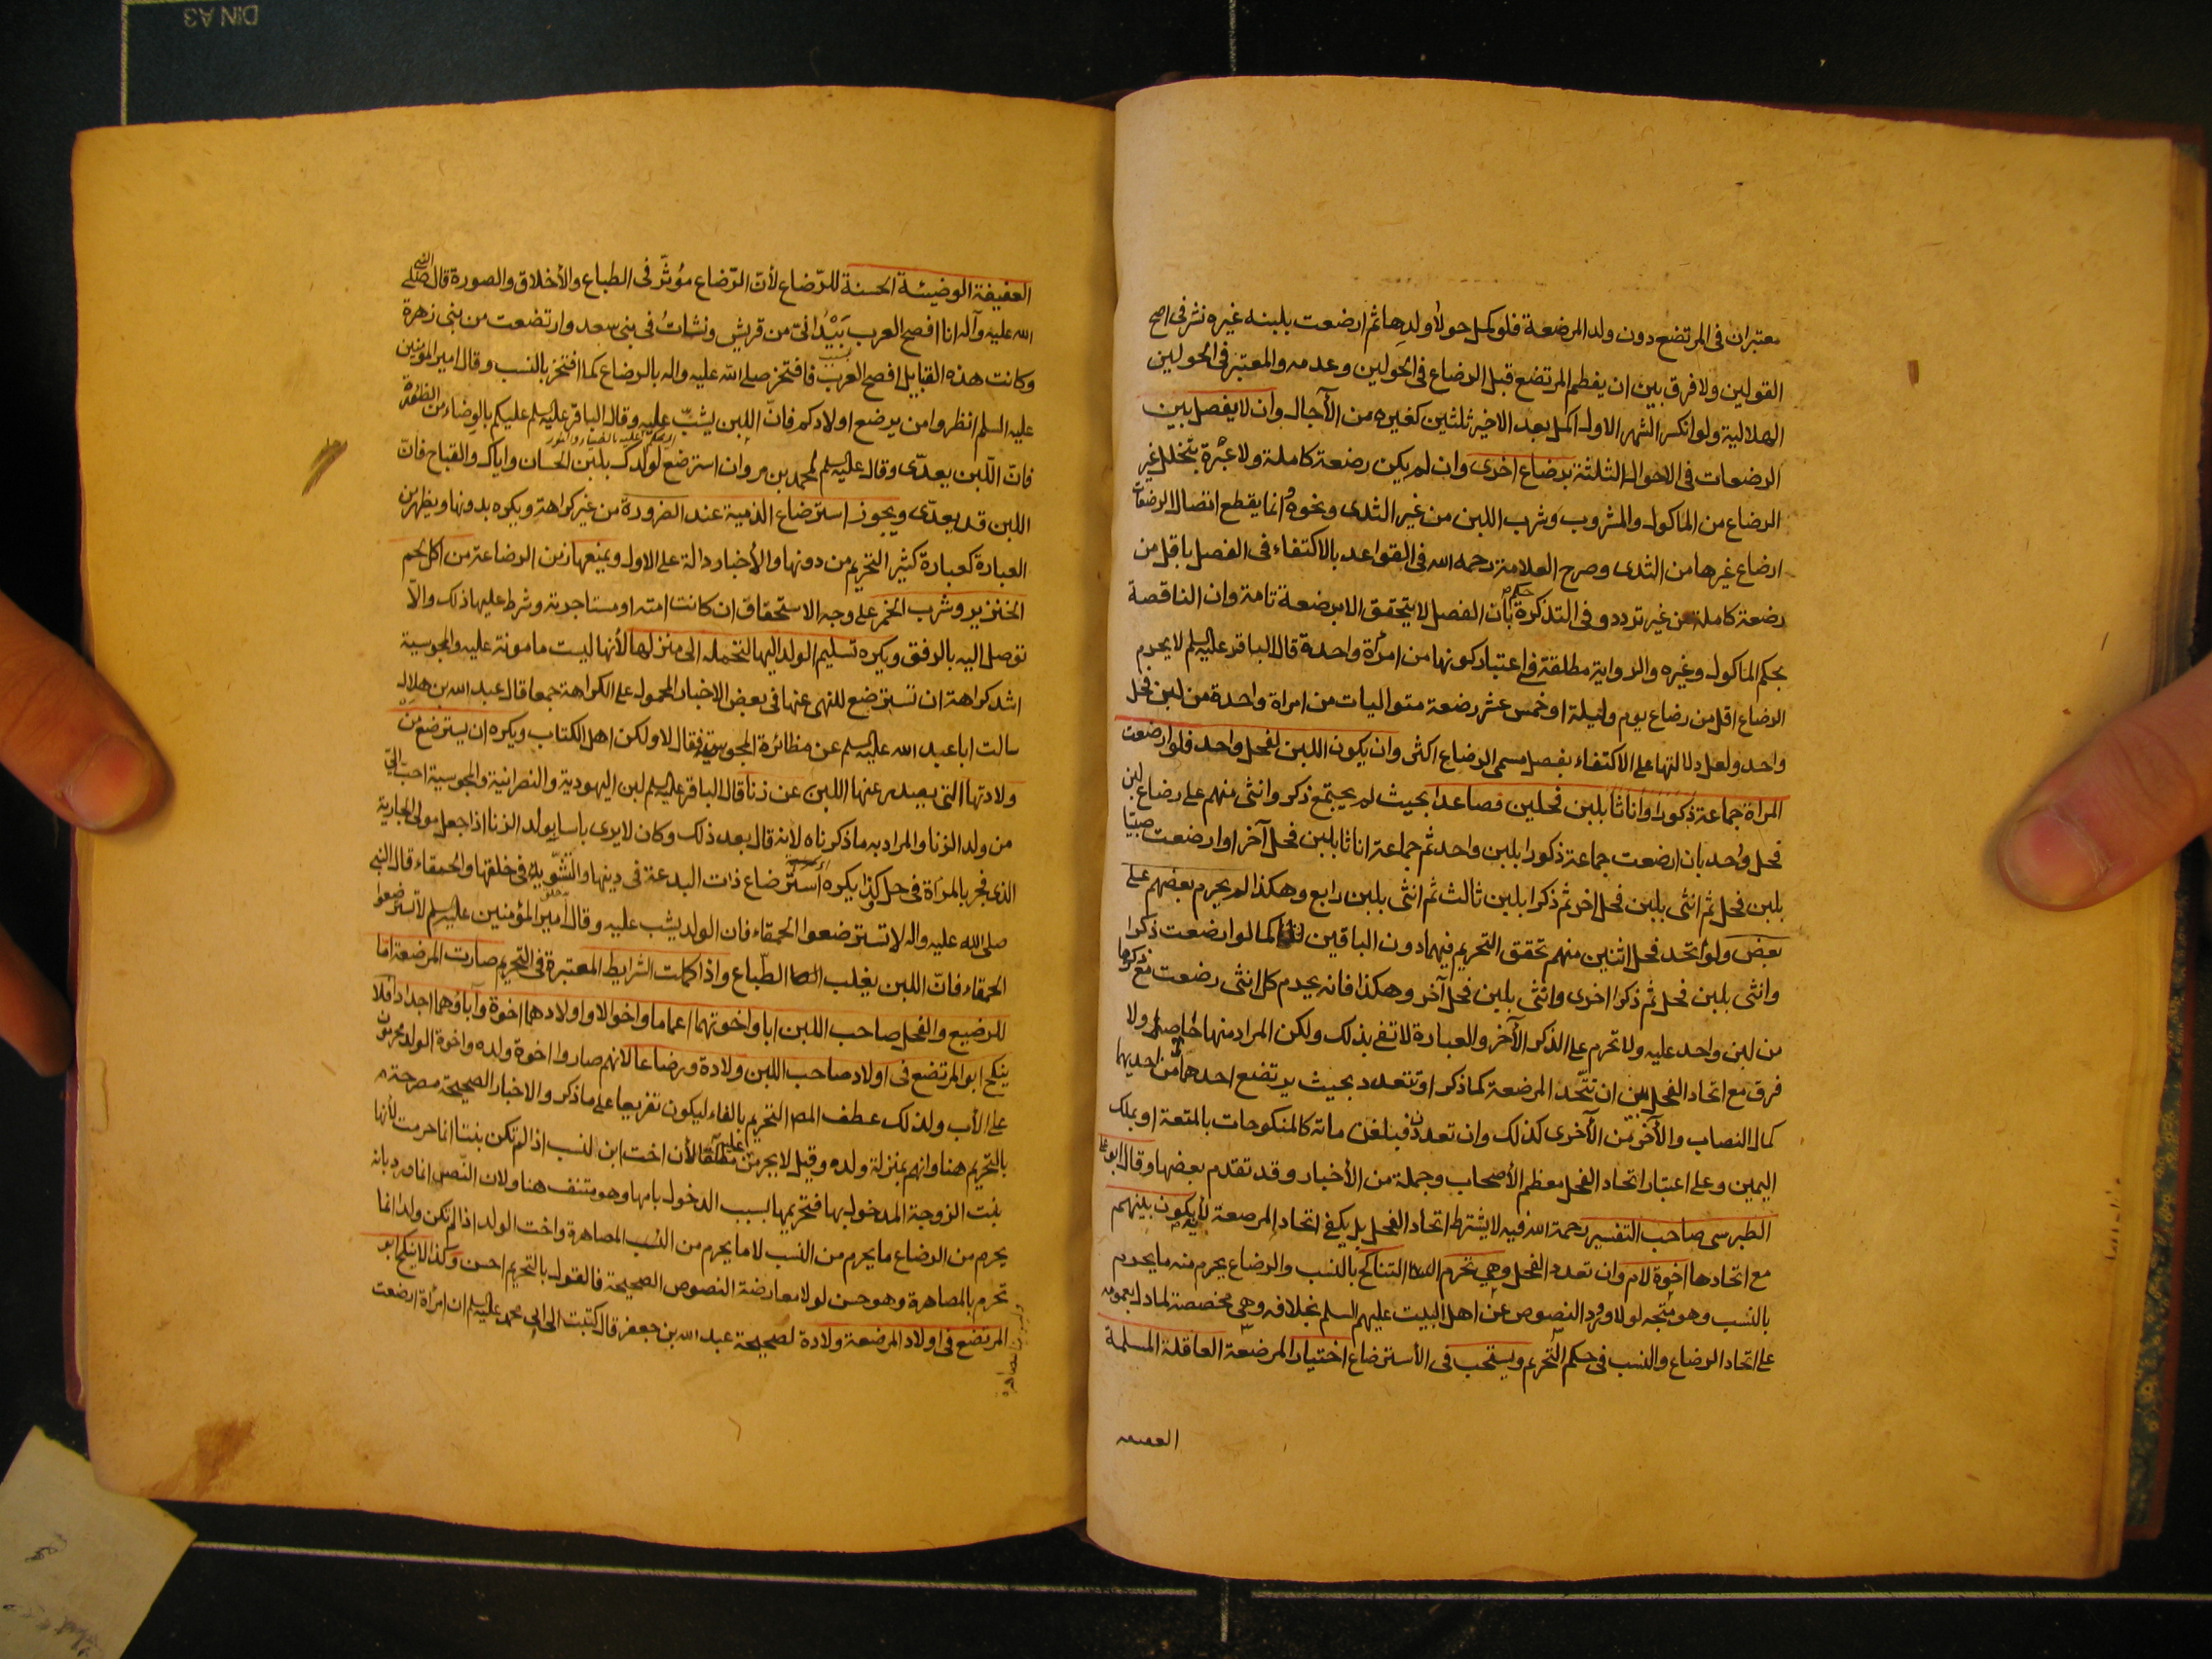 معتبران في المرتضع دون ولد المرضعة فلو كمل حولا ولدها ثم ارضعت بلبنه غيره نشر في اصح
القولين ولا فرق بين ان يفطم المرتضع قبل الرضاع في الحولين وعدمه والمعتبر في الحولين
الهلالية ولو انكسر الشهر الاول اكمل بعد الاخير ثلثين كغيره من الآجال وان لا يفصل بين
الرضعات في الاحوال الثلثة برضاع اخرى وان لم يكن رضعة كاملة ولا عبرة بتخلل غير
الرضاع من الماكول والمشروب وشرب اللبن من غير الثدى ونحوه وانما يقطع اتصال الرضعات
ارضاع غيرها من الثدى وصرح العلامة رحمه الله في القواعد بالاكتفاء في الفصل باقل من
رضعة كاملة من غير تردد وفي التذكرة بان الفصل لا يتحقق الا برضعة تامة وان الناقصة
بحكم الماكول وغيره والرواية مطلقة في اعتبار كونها من امرأة واحدة قال الباقر عليه السلم لا يحرم
الرضاع اقل من رضاع يوم وليلة او خمس عشر رضعة متواليات من امراة واحدة من لبن فحل
واحد ولعل دلالتها على الاكتفاء بفصل مسمى الرضاع اكثر وان يكون اللبن لفحل واحد فلو ارضعت
المراة جماعة ذكورا واناثا بلبن فحلين فصاعدا بحيث لم يجتمع ذكر وانثى منهم على رضاع لبن
فحل واحد بان ارضعت جماعة ذكورا بلبن واحد ثم جماعة اناثا بلبن فحل آخر او ارضعت صبيا
بلبن فحل ثم انثى بلبن فحل اخر ثم ذكرا بلبن ثالث ثم انثى بلبن رابع وهكذا لم يحرم بعضهم على
بعض ولو اتحد فحل اثنين منهم تحقق التحريم فيهما دون الباقين كما لو ارضعت ذكرا
وانثى بلبن فحل ثم ذكرا اخرى وانثى بلبن فحل آخر وهكذا فانه يحرم كل انثى رضعت مع ذكرها
من لبن واحد عليه ولا تحرم على الذكر الآخر والعبارة لا تفى بذلك ولكن المراد منها حاصل ولا
فرق مع اتحاد الفحل بين ان تتحد المرضعة كما ذكر او تتعدد بحيث يرتضع احدهما من احديهما
كمال النصاب والآخر من الآخرى كذلك وان تعددن فبلغن ماتة كالمنكوحات بالمتعة او بملك
اليمين وعلى اعتبار اتحاد الفحل معظم الأصحاب وجملة من الأخبار وقد تقدم بعضها وقال ابو على
الطبرسى صاحب التفسير رحمة الله فيه لا يشترط اتحاد الفحل بل يكفى اتحاد المرضعة لأنه يكون بينهم
مع اتحادها اخوة لام وان تعدد الفحل وهي تحرم التناكح بالنسب والرضاع يحرم منه ما يحرم
بالنسب وهو متجه لولا ورود النصوص عن اهل البيت عليهم السلم بخلافه وهي مخصصة لما دل بعمومه
على اتحاد الرضاع والنسب في حكم التحريم ويستحب في الأسترضاع اختيار المرضعة العاقلة المسلمة
العفيفة
العفيفة الوضيئة الحسنة للرضاع لأن الرضاع مؤثر في الطباع والأخلاق والصورة قال النبي صلى
الله عليه وآله انا افصح العرب بيد انى من قريش ونشات في بنى سعد وارتضعت من بنى زهرة
وكانت هذه القبايل افصح العرب فافتخر صلى الله عليه واله بالرضاع كما افتخر بالنسب وقال امير المؤمنين
عليه السلم انظروا من يرضع اولادكم فان اللبن يشب عليه وقال الباقر عليه السلم عليكم بالوضاء من الظؤرة
فان اللبن يعدى وقال عليه السلم لمحمد بن مروان استرضع لولدك بلبن الحسان واياك والقباح فان
اللبن قد يعدى ويجوز استرضاع الذمية عند الضرورة من غير كراهة ويكره بدونها ويظهر من
العبارة كعبارة كثير التحريم من دونها والأخبار دالة على الاول ويمنعها زمن الرضاعة من اكل لحم
الخنزير وشرب الخمر على وجه الاستحقاق ان كانت امته او مستاجرته وشرط عليها ذلك والا
توصل اليه بالرفق ويكره تسليم الولد اليها لتحمله الى منزلها لأنها ليست مامونة عليه والمجوسية
اشد كراهة ان تسترضع للنهى عنها في بعض الاخبار المحمول على الكراهة جمعا قال عبد الله بن هلال
سالت ابا عبد الله عليه السلم عن مظائرة المجوسية فقال لا ولكن اهل الكتاب ويكره ان يسترضع من
ولادتها التى يصدر عنها اللبن عن زنا قال الباقر عليه السلم لبن اليهودية والنصرانية والمجوسية احب الى
من ولد الزنا والمراد به ما ذكرناه لانه قال بعد ذلك وكان لا يرى باسا بولد الزنا اذا جعل مولى الجارية
الذى فجر بالمرأة في حل وكذا يكره استرضاع ذات البدعة في دينها والتشويه في خلقها والحمقاء قال النبي
صلى الله عليه واله لا تسترضعوا الحمقاء فان الولد يشب عليه وقال امير المؤمنين عليه السلم لا تسترضعوا
الحمقاء فان اللبن يغلب الطباع واذا كملت الشرايط المعتبرة في التحريم صارت المرضعة اما
للرضيع والفحل صاحب اللبن ابا واخوتهما اعماما واخوالا واولادهما اخوة وآباؤهما اجدادا فلا
ينكح ابو المرتضع في اولاد صاحب اللبن ولادة ورضاعا لانهم صاروا اخوة ولده واخوة الولد محرمون
على الأب ولذلك عطف المص التحريم بالفاء ليكون تفريعا على ما ذكر والاخبار الصحيحة مصرحة
بالتحريم هنا وانهم بمنزلة ولده وقيل لا يحرمن عليه مطلقا لأن اخت ابن النسب اذا لم تكن بنتا انما حرمت لأنها
بنت الزوجة المدخول بها فتحريمها بسبب الدخول بامها وهو منتف هنا ولان النص انما ورد بانه
يحرم من الرضاع ما يحرم من النسب لا ما يحرم من المصاهرة واخت الولد اذا لم تكن ولدا انما
تحرم بالمصاهرة وهو حسن لولا معارضة النصوص الصحيحة فالقول بالتحريم احسن وكذا لا ينكح ابو
المرتضع في اولاد المرضعة ولادة لصحيحة عبد الله بن جعفر قال كتبت الى ابي محمد عليه السلم ان امرأة ارضعت